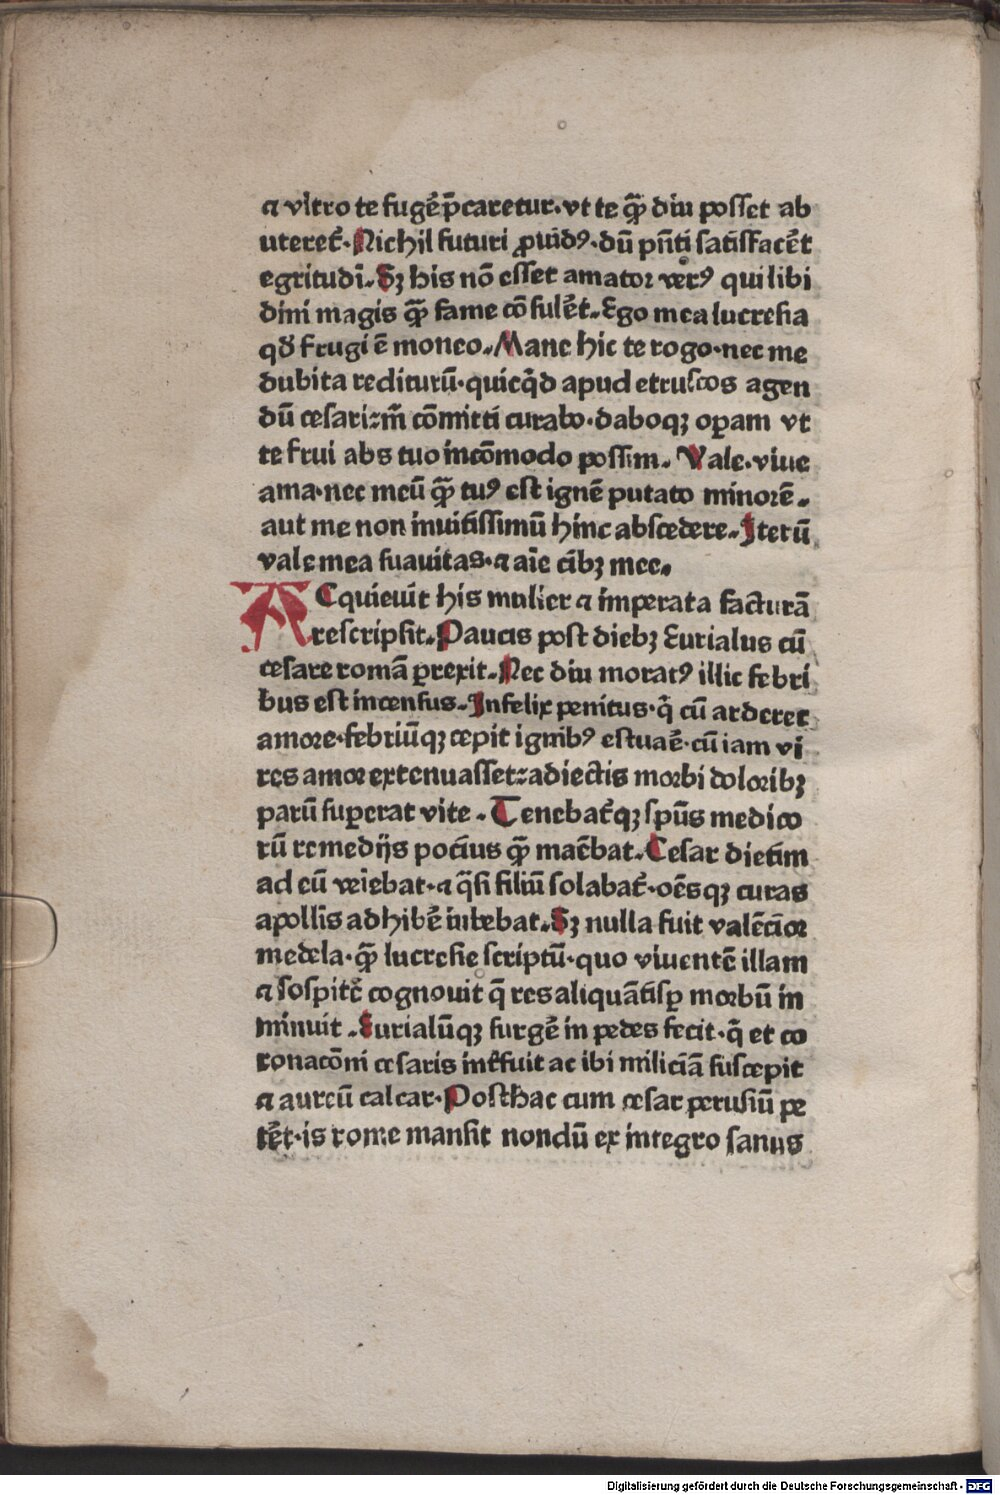 ⁊ vltro te fugē p̄caretur· vt te q̄ꝫ diu posset ab
uteret᷑· Nichil futuri ꝓuidꝰ· dū pn̄ti satisfacēt
egritudī· Sꝫ his nō esset amator verꝰ qui libi
dini magis q̄ꝫ fame cōsulēt· Ego mea lucresia
qđ frugi ē moneo· Mane hic te rogo· nec me
dubita rediturū· quicq̄d apud etruscos agen
dū cesari: m̄ cōmitti curabo· daboqꝫ oꝑam vt
te frui abs tuo incōmodo possim· Vale· viue
ama· nec meū q̄ꝫ tuꝰ est ignē putato minorē·
aut me non inuitissimū hinc abscedere· Iterū
vale mea suauitas· ⁊ aīe cibꝫ mee·
ACquieuit his mulier ⁊ imperata facturā
rescripsit· Paucis post diebꝫ Eurialus cū
cesare romā ꝑrexit· Nec diu moratꝰ illic febri
bus est incensus· Infelix penitus· q̄ cū arderet
amore· febriūqꝫ cepit ignibꝰ estuaē· cū iam vi
res amor extenuasset: adiectis morbi doloribꝫ
parū suꝑerat vite · Tenebat᷑qꝫ spūs medico
rū remedijs pocius q̄ꝫ maēbat· Cesar dietim
ad eū veīebat· ⁊ q̄si filiū solabat᷑· oēsqꝫ curas
apollīs adhibē iubebat· Sꝫ nulla fuit valēcior
medela· q̄ꝫ lucresie scriptū· quo viuentē illam
⁊ sospitē cognouit q̄ res aliquātisꝑ morbū in
minuit · Eurialūqꝫ surgē in pedes fecit· q̄ et co
ronacōni cesaris int᷑fuit ac ibi miliciā suscepit
⁊ aureū calcar· Posthac cum cesar perusiū pe
tēt· is rome mansit nondū ex integro sanus
Digitalisierung gefördert durch die Deutsche Forschungsgemeinschaft - DFG